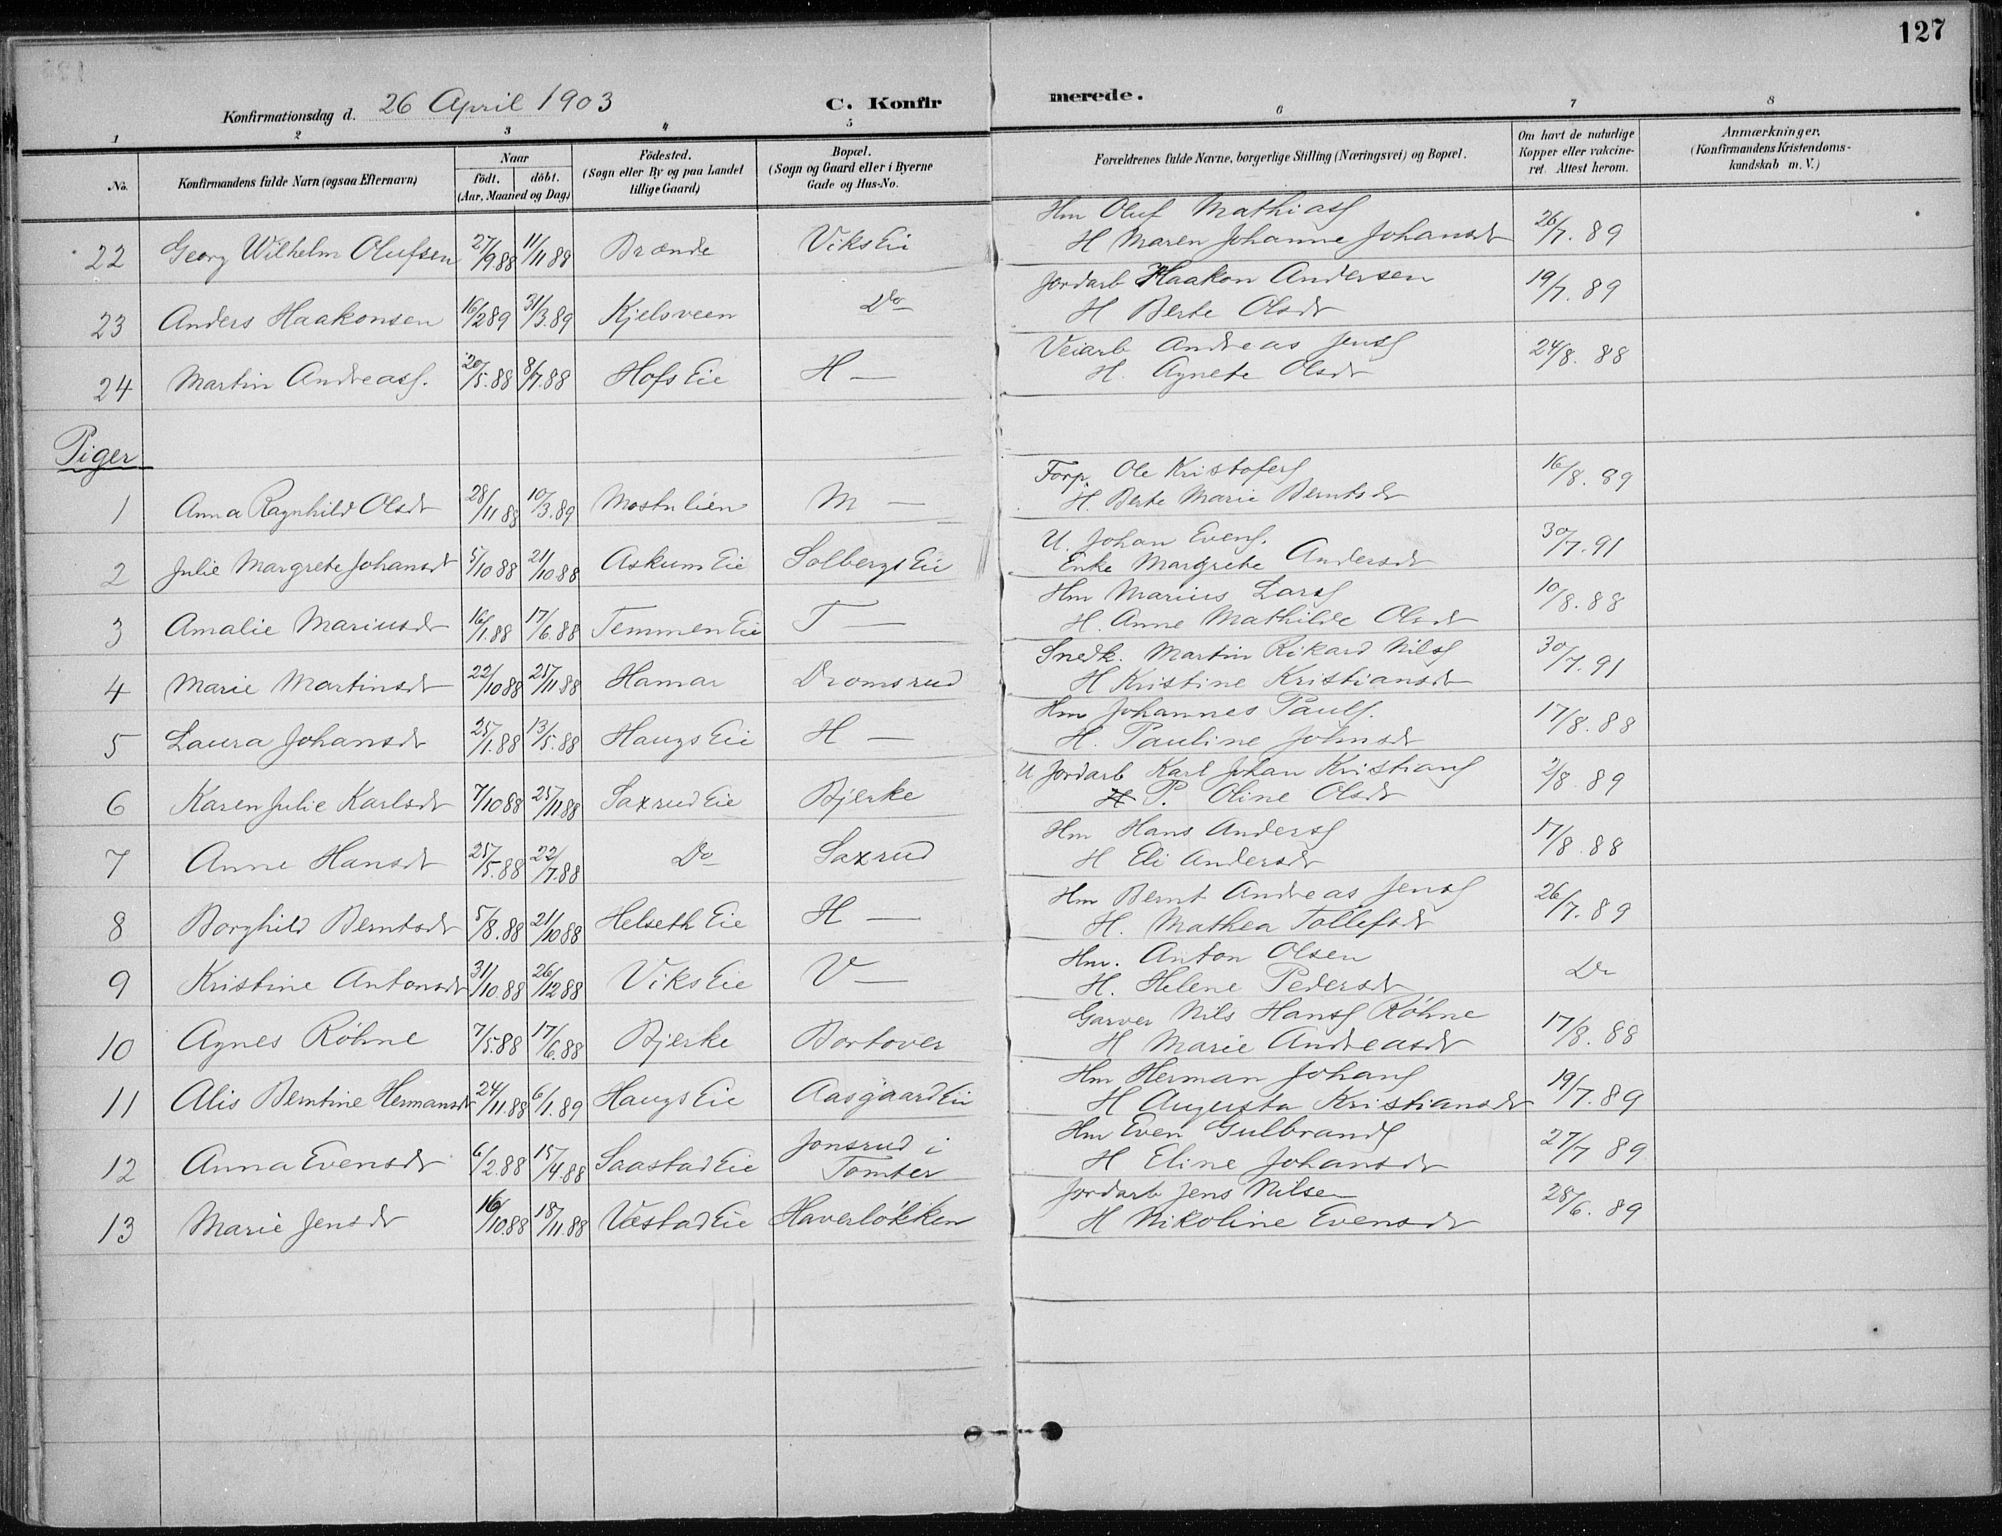 127
Konfirmationsdag d. 26 April 1903 C. Konfirmerede.
1 2 3 4 5 6 7 8
No. Konfirmandens fulde Navn (ogsaa Efternavn) Naar født. døbt. (Aar, Maaned og Dag) Födested. (Sogn eller By og paa Landet tillige Gaard) Bopæl. (Sogn og Gaard eller i Byerne Gade og Hus-No. Forældrenes fulde Navne, borgerlige Stilling (Næringsvei) og Bopæl. Om havt de naturlige Kopper eller vakcineret. Attest herom. Anmærkninger. (Konfirmandens Kristendomskundskab m. V.)
Hm Oluf Mathiass
22 Georg Wilhelm Olufsen 27/9.88 11/11 88 Brænde Viks Eie H Maren Johanne Johansdr 26/7. 89
Jordarb Haakon Andersen
23 Anders Haakonsen 16/2 89 31/3.89 Kjelsveen Do H Berte Olsdr 19/7. 89
Veiarb Andreas Jenss
24 Martin Andreass. 20/5.88 8/7.88 Hofs Eie H — H. Agnete Olsdr 24/8. 88
Piger
Forp. Ole Kristofers
1 Anna Ragnhild Olsdr 28/11 88 10/3.89 Mostulien M — H. Berte Marie Berntsdr 16/8. 89
U. Johan Evens.
2 Julie Margrete Johansdr 5/10 88 21/10.88 Askum Eie Solbergs Eie Enke Margrete Andersdr 30/7.91
Hm Marius Larss
3 Amalie Mariusdr 16/1.88 17/6.88 Temmen Eie T — H. Anne Mathilde Olsdr 10/8.88
Snedk. Martin Rikard Nilss
4 Marie Martinsdr 22/10 88 25/11.88 Hamar Dromsrud H Kristine Kristiansdr 30/7.91
Hm Johannes Pauls.
5 Laura Johansdr 25/1.88 13/5.88 Haugs Eie H — H. Pauline Johnsdr 17/8.88
U Jordarb Karl Johan Kristians
6 Karen Julie Karlsdr 7/10 88 25/11 88 Saxrud Eie Bjerke H P. Oline Olsdr 2/8 89
Hm Hans Anderss
7 Anne Hansdr 25/5.88 22/7.88 Do Saxrud H Eli Andersdr 17/8.88
Hm Bernt Andreas Jenss
8 Borghild Berntsdr 5/8.88 21/10 88 Helseth Eie H — H. Mathea Tollefsdr 26/7.89
Hm. Anton Olsen
9 Kristine Antonsdr 31/10.88 26/12 88 Viks Eie V — H. Helene Pedersdr Do
Garver Nils Hanss Röhne
10 Agnes Röhne 7/5.88 17/6.88 Bjerke Bortover H Marie Andreasdr 17/8. 88
Hm Herman Johans
11 Alis Berntine Hermansdr 24/11.88 6/1.89 Haugs Eie Aasgaard Eie H Augusta Kristiansdr 19/7.89
Hm Even Gulbrands
12 Anna Evensdr 6/2.88 15/4.88 Saastad Eie Jonsrud i Tomter H Eline Johansdr 27/7 89
Jordarb Jens Nilsen
13 Marie Jensdr 16/10.88 18/11.88 Vestad Eie Haverlökken H Nikoline Evensdr 28/6. 89